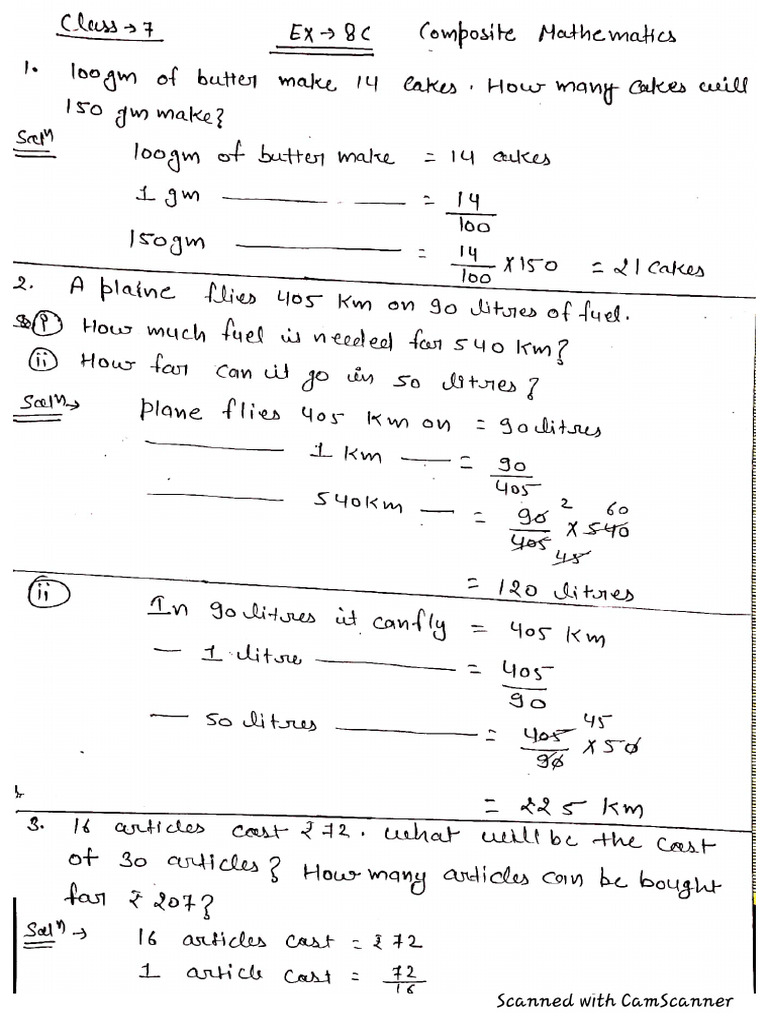 Class → 7 Ex → 8C Composite Mathematics
1. 100gm of butter make 14 cakes. How many cakes will
150 gm make?
Solⁿ 100gm of butter make = 14 cakes
1 gm ——— = 14/100
150gm ——— = 14/100 × 150 = 21 cakes
2. A plaine flies 405 Km on 90 litres of fuel.
(i) How much fuel is needed for 540 Km?
(ii) How far can it go in 50 litres?
Solⁿ → plane flies 405 Km on = 90 litres
——— 1 Km — = 90/405
——— 540Km — = 90/405 × 540 2 60 45
= 120 litres
(ii) In 90 litres it can fly = 405 Km
— 1 litre ——— = 405/90
— 50 litres ——— = 405/90 × 50 45
= 225 Km
3. 16 articles cost ₹72. what will be the cost
of 30 articles? How many articles can be bought
for ₹ 207?
Solⁿ → 16 articles cost = ₹72
1 article cost = 72/16
Scanned with CamScanner